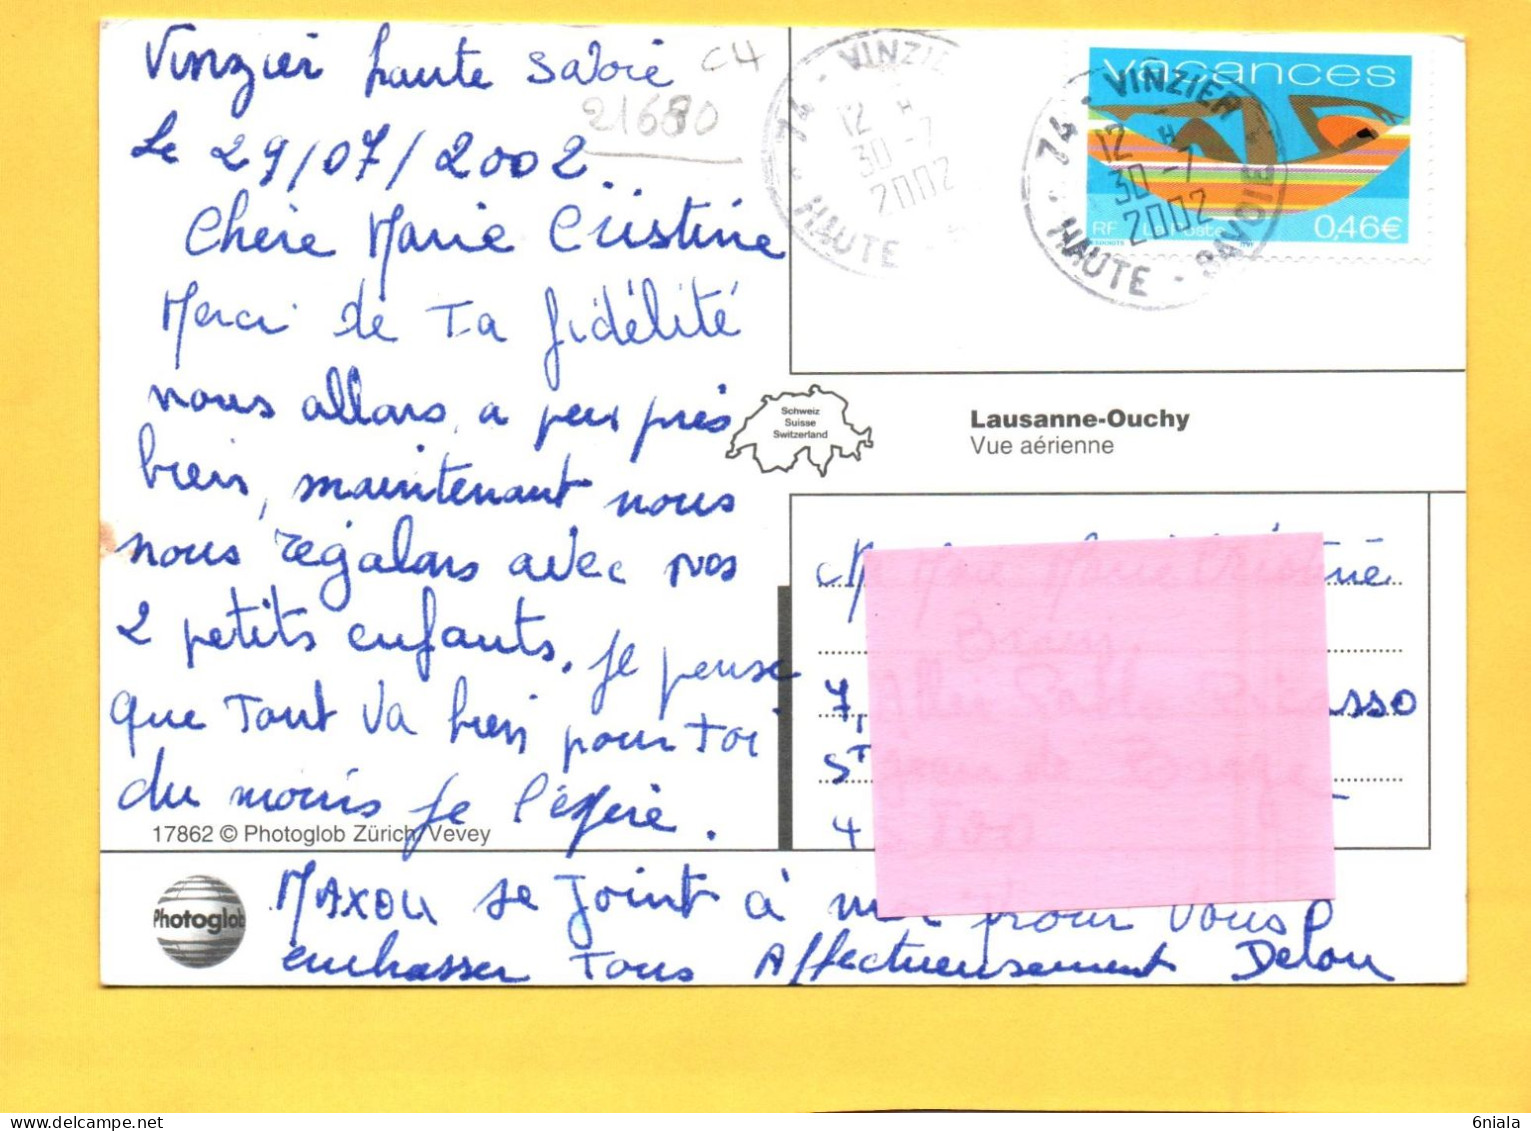 Vinzier haute Savoie
C4
21680
le 29/07/2002
Chère Marie Cristine
Merci de Ta fidélité
nous allons, a peu près
bien, maintenant nous
nous régalons avec nos
2 petits enfants. je pense
que Tout va bien pour Toi
du moins je l'éspère.
17862 © Photoglob Zürich/Vevey
Photoglob
MAXOU se Joint à moi pour vous
embrasser Tous Affectueusement Delou
74 - VINZIER
12 H
30 -7
2002
HAUTE -
vacances
RF
0,46€
74 - VINZIER
12 H
30 -7
2002
HAUTE - SAVOIE
Schweiz
Suisse
Switzerland
Lausanne-Ouchy
Vue aérienne
7,
ST
4
6niala